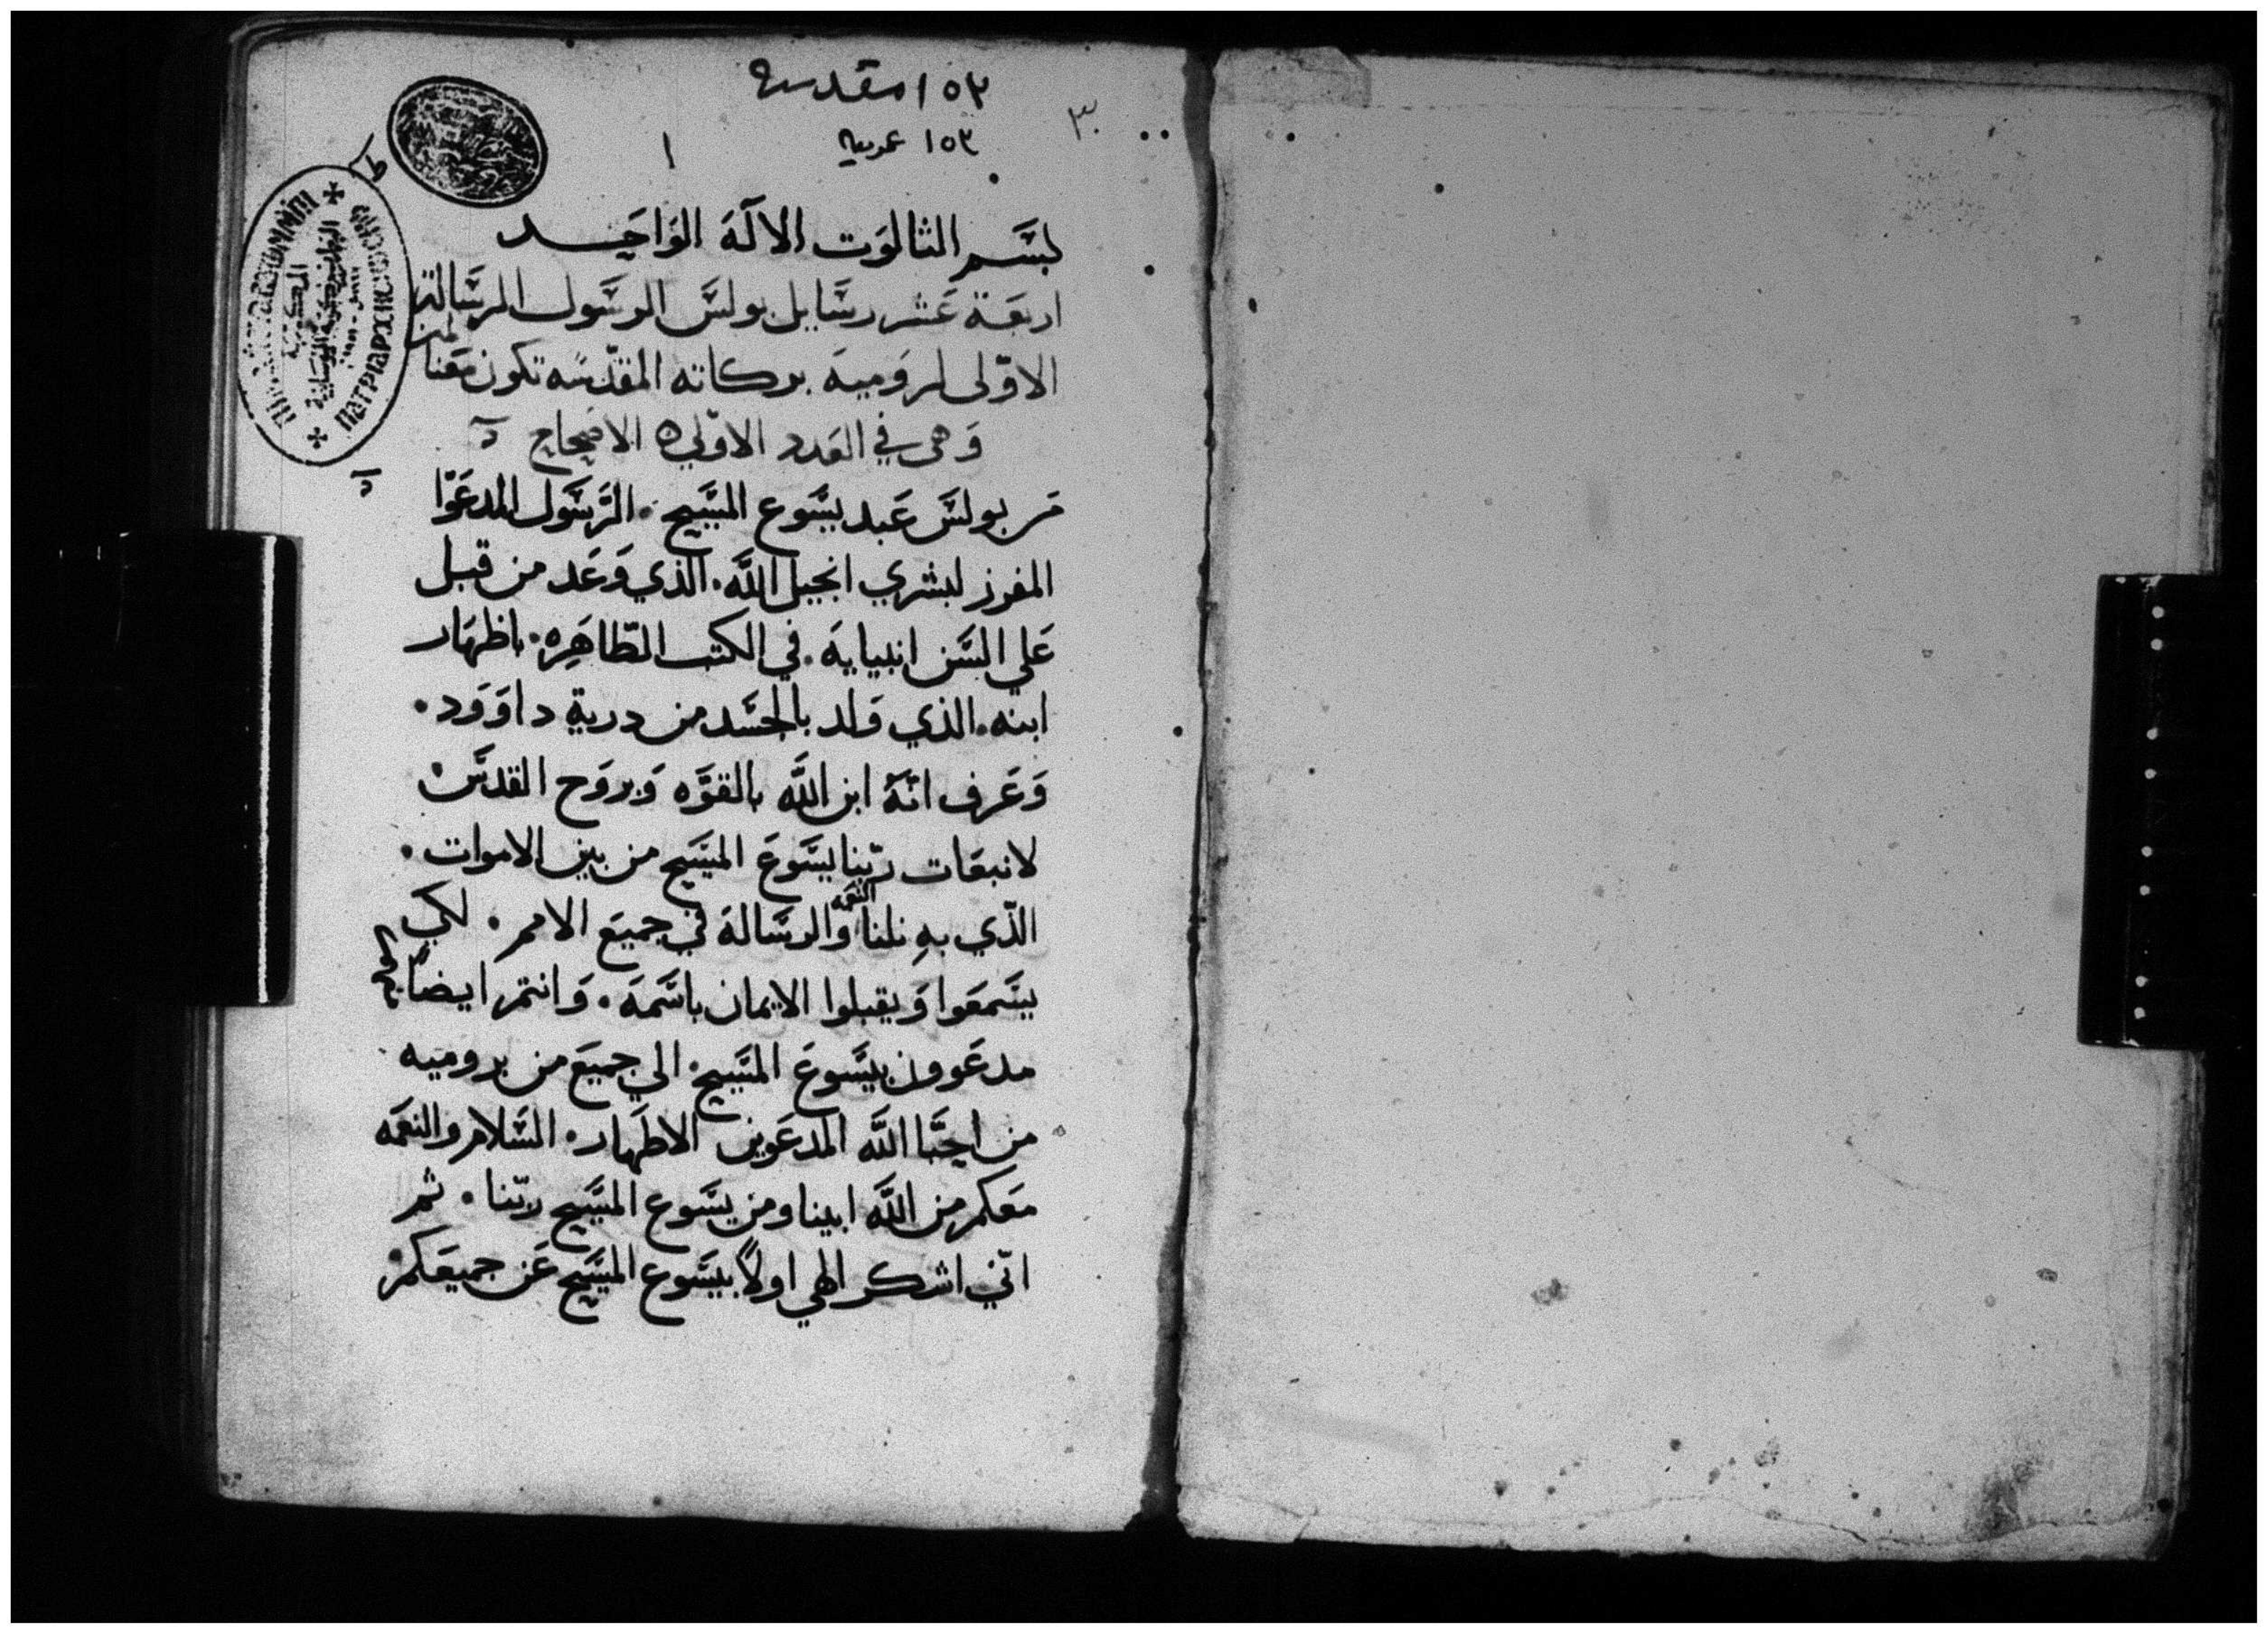 ١٥٣ مقدسه
١٥٣ عربيه
١
بسم الثالوت الاله الواحد
اربعة عشر رسايل بولس الرسول الرسالة
الاوّلى لروميه بركاته المقدّسه تكون معنا
امين
وهى في العدد الاولي ه الاصحاح
من بولس عبد يسوع المسيح . الرسول المدعوّا
المفرز لبشري انجيل الله . الذي وعد من قبل
علي السن انبيايه . في الكتب الطّاهره . باظهار
ابنه . الذي ولد بالجسد من درية داوود .
وعرف انّه ابن الله بالقوّه وبروح القدس
لانبعات ربّنا يسوع المسيح من بين الاموات .
الذّي به نلنا النعمه والرسالة في جميع الامم . لكي
يسمعوا ويقبلوا الايمان باسمه . وانتم ايضاً
مدعوون بيسوع المسيح . الي جميع من بروميه
من احبّا الله المدعوين الاطهار . السلام والنعمه
معكم من الله ابينا ومن يسوع المسيح ربّنا . ثم
انّي اشكر الهي اولاً بيسوع المسيح عن جميعكم